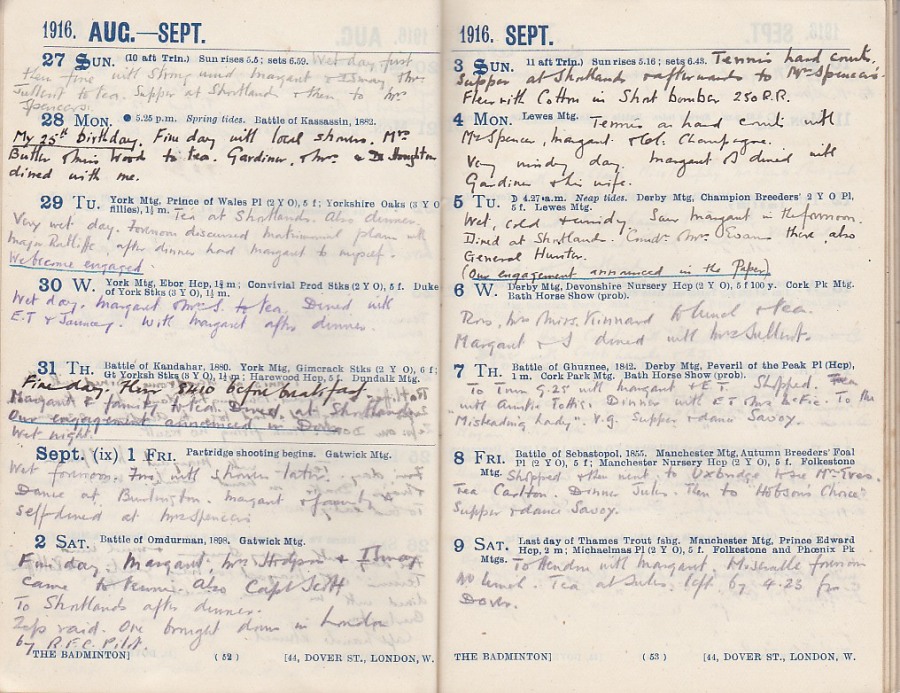 1916. AUG.—SEPT.
27 SUN. (10 aft Trin.) Sun rises 5.5; sets 6.59. Wet day first
then fine with strong wind. Margaret & Ismay Mrs
Sullent to tea. Supper at Shortlands & then to Mrs
Spencers.
28 MON. ● 5.25 p.m. Spring tides. Battle of Kassassin, 1882.
My 25th birthday. Fine day with local showers. Mrs
Butler & Miss Wood to tea. Gardiner, & Mrs & Dr Houghton
dined with me.
29 TU. York Mtg, Prince of Wales Pl (2 Y O), 5 f; Yorkshire Oaks (3 Y O
fillies), 1½ m. Tea at Shortlands. Also dinner.
Very wet day. Forenoon discussed matrimonial plans with
Major Ratliffe, after dinner had Margaret to myself.
We become engaged.
30 W. York Mtg, Ebor Hcp, 1¾ m; Convivial Prod Stks (2 Y O), 5 f. Duke
of York Stks (3 Y O), 1¼ m.
Wet day. Margaret & Mrs S. to tea. Dined with
E.T & Sauncey. With Margaret after dinner.
31 TH. Battle of Kandahar, 1880. York Mtg, Gimcrack Stks (2 Y O), 6 f;
Gt Yorksh Stks (3 Y O), 1½ m; Harewood Hcp, 5 f. Dundalk Mtg.
Fine day. Flew before breakfast.
Margaret & family to tea. Dined at Shortlands.
Our engagement announced in Dover.
Wet night.
Sept. (ix) 1 FRI. Partridge shooting begins. Gatwick Mtg.
Wet forenoon. Fine with showers later.
Dance at Burlington. Margaret &
self dined at Mrs Spencers
2 SAT. Battle of Omdurman, 1898. Gatwick Mtg.
Fine day. Margaret, Mrs Hodgson & Ismay
came to tennis. Also Capt Scott
To Shortlands after dinner.
Zepp raid. One brought down in London
by R.F.C. Pilot.
THE BADMINTON] (52) [44, DOVER ST., LONDON, W.
1916. SEPT.
3 SUN. 11 aft Trin.) Sun rises 5.16; sets 6.43. Tennis hard courts.
Supper at Shortlands & afterwards to Mrs Spencers.
Flew with Cotton in Short bomber 250 R.R.
4 MON. Lewes Mtg. Tennis on hard court with
Mrs Spencer, Margaret & Col. Champagne.
Very windy day. Margaret & I dined with
Gardiner & his wife.
5 TU. 4.27 a.m. Neap tides. Derby Mtg, Champion Breeders' 2 Y O Pl,
5 f. Lewes Mtg.
Wet, cold & windy. Saw Margaret in the forenoon.
Dined at Shortlands. Comdr & Mrs Evans there, also
General Hunter.
(Our engagement announced in the Paper)
6 W. Derby Mtg, Devonshire Nursery Hcp (2 Y O), 5 f 100 y. Cork Pk Mtg.
Bath Horse Show (prob).
Ross, Mrs & Miss Kinnard to lunch & tea.
Margaret & I dined with Mrs Sullent.
7 TH. Battle of Ghuznee, 1842. Derby Mtg, Peveril of the Peak Pl (Hcp),
1 m. Cork Park Mtg. Bath Horse Show (prob).
To Town 9.25 with Margaret & E.T. Shopped. Tea
with Auntie Tottie. Dinner with E.T & Mrs McFie. To the
"Misleading Lady". V.g. Supper & dance Savoy.
8 FRI. Battle of Sebastopol, 1855. Manchester Mtg, Autumn Breeders' Foal
Pl (2 Y O), 5 f; Manchester Nursery Hcp (2 Y O), 5 f. Folkestone
Mtg. Shopped & then went to Uxbridge to see
Tea Carlton. Dinner Jules. Then to Hobson's Choice
Supper & dance Savoy.
9 SAT. Last day of Thames Trout fshg. Manchester Mtg, Prince Edward
Hcp, 2 m; Michaelmas Pl (2 Y O), 5 f. Folkestone and Phœnix Pk
Mtgs. To Hendon with Margaret. Miserable forenoon
No lunch. Tea at Jules. Left by 4.23 for
Dover.
THE BADMINTON] (53) [44, DOVER ST., LONDON, W.